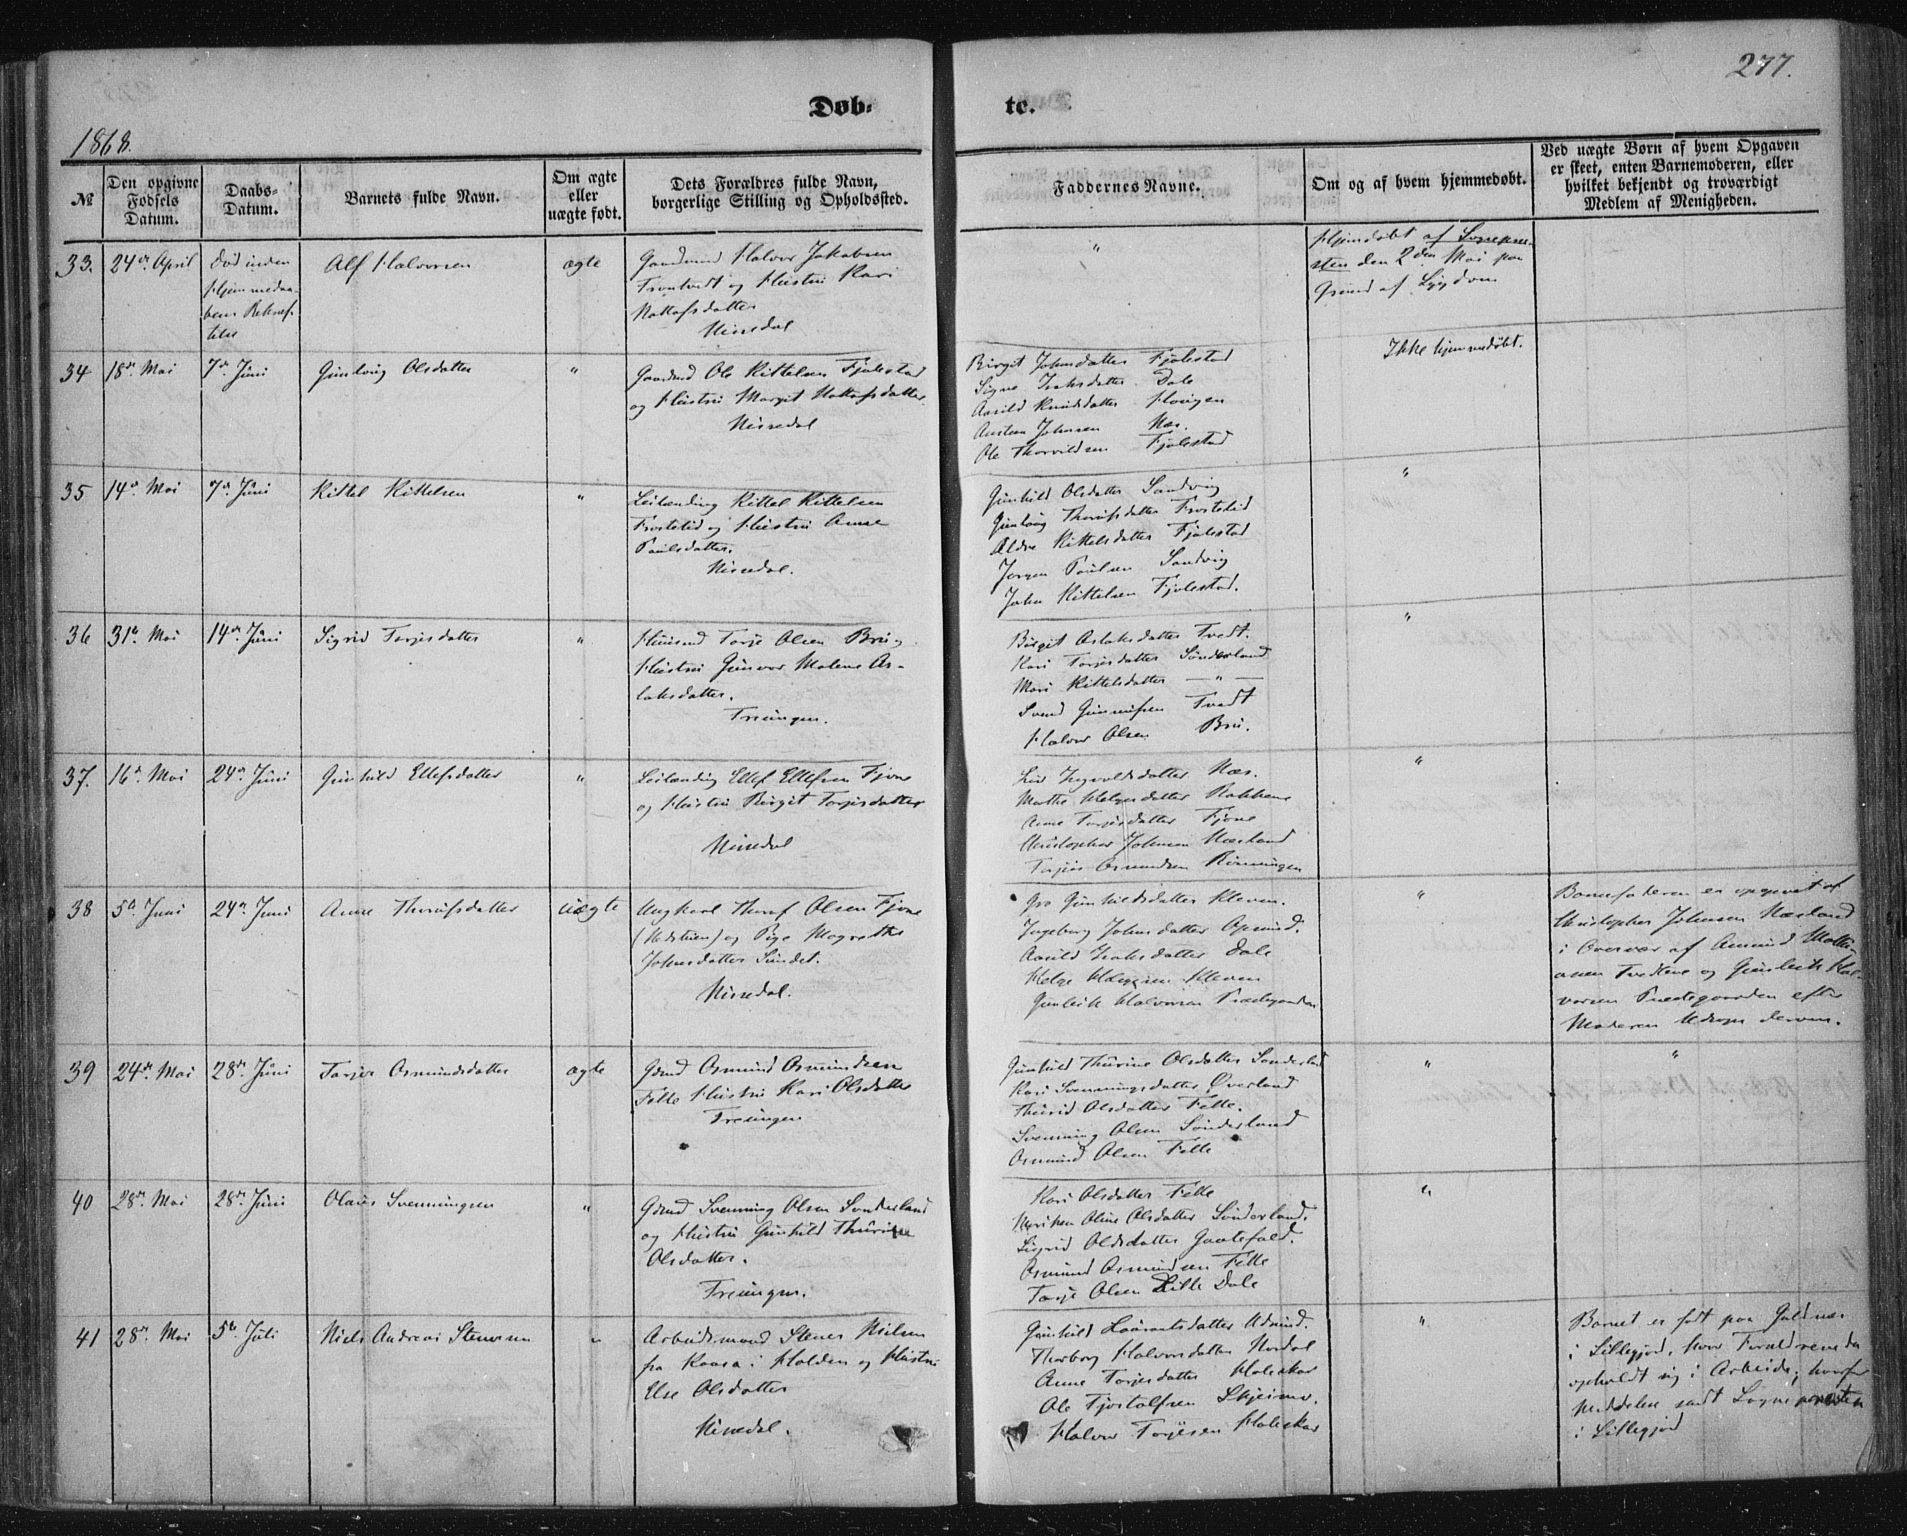 277.
Døb-
te.
1868.
№
Den opgivne
Fødsels
Datum.
Daabs-
Datum.
Barnets fulde Navn.
Om ægte
eller
uægte født.
Dets Forældres fulde Navn,
borgerlige Stilling og Opholdssted.
Faddernes Navne.
Om og af hvem hjemmedøbt.
Ved uægte Børn af hvem Opgaven
er skeet, enten Barnemoderen, eller
hvilket bekjendt og troværdigt
Medlem af Menigheden.
33.
24de April
Død inden
Hjemmedaa-
bens
Alf Halvorsen
ægte
Gaardmd Halvor Jakobsen
Trontvedt og Hustru Kari
Nottofsdatter
Nissedal
"
Hjemdøbt af Sognepræ-
sten den 2den Mai paa
Grund af Sygdom
34
18de Mai
7de Juni
Gunlaug Olsdatter
"
Gaardmd Ole Kittelsen Fjalestad
og Hustru Margit Nottofsdatter
Nissedal
Birgit Johnsdatter Fjalestad
Signe Isaksdatter Dale
Aasild Knudsdatter Haugen
Austen Johnsen Næs.
Ole Thorvildsen Fjalestad
Ikke hjemmedøbt.
35
14de Mai
7de Juni
Kittel Kittelsen
"
Leilænding Kittel Kittelsen
Frostelid og Hustru Anne
Paulsdatter.
Nissedal.
Gunhild Olsdatter Sandvig
Gunlaug Thorufsdatter Frostelid
Aldre Kittelsdatter Fjalestad
Jørgen Paulsen Sandvig
John Kittelsen Fjalestad.
"
36
31te Mai
14de Juni
Sigrid Torjesdatter
"
Huusmd Torje Olsen Bru og
Hustru Gunvor Malene As-
laksdatter.
Treungen.
Birgit Aslaksdatter Tvedt.
Kari Torjesdatter Sunderland
Mari Kittelsdatter — " —
Svend Gunnufsen Tvedt
Halvor Olsen Bru.
"
37.
16de Mai
24de Juni
Gunhild Ellefsdatter
"
Leilænding Ellef Ellefsen Fjone
og Hustru Birgit Torjesdatter
Nissedal
Liv Ingvoldsdatter Næs.
Marthe Helgesdatter Bakkene
Anne Torjesdatter Fjone
Christopher Johnsen Næsland
Torjus Osmundsen Rønningen
"
38
5te Juni
24de Juni
Anne Thorufsdatter
uægte
Ungkarl Thoruf Olsen Fjone
og Pige Magrethe
Johnsdatter Sundet.
Nissedal.
Gro Gunhildsdatter Kleven.
Ingeborg Johnsdatter Opsund.
Aasild Isaksdatter Dale
Helge Kleven
Gunleik Halvorsen Præstegaarden
"
Barnefaderen er opgivet af
Christopher Johnsen Næsland
i Overvær af Amund
Tvedtene og Gunleik Hal-
vorsen Præstegaarden efter
Moderen Udsagn derom.
39
24de Mai
28de Juni
Torjer Osmundsdatter
ægte
Grmd Osmund Osmundsen
Felle Hustru Kari Olsdatter
Treungen
Gunhild Thurine Olsdatter Sunderland
Kari Svenningsdatter Øverland
Thurid Olsdatter Felle.
Svenning Olsen Sunderland
Osmund Olsen Felle
"
"
40
28de Mai
28de Juni
Olaus Svenningsen
"
Grmd Svenning Olsen Sunderland
og Hustru Gunhild Thurine
Olsdatter.
Treungen.
Kari Olsdatter Felle
Olsdatter Sunderland.
Sigrid Oldsdatter Gautefald.
Osmund Osmundsen Felle
Torje Olsen Lille Dale
"
41
28de Mai
5te Juli
Niels Andreas Stenersen
"
Arbeidsmand Stener Nielsen
fra Kaasa i Holden og Hustru
Else Olsdatter
Nissedal.
Gunhild Lauransdatter
Thorborg Halvorsdatter Nordal
Anne Torjesdatter Haleskar
Ole Fjostolfsen Skjeimo.
Halvor Torjesen Haleskar
"
Barnet er født paa
i Sillegjord, hvor Forældrene da
opholdt sig i Arbeide, hvorfor
Meddelse sendt Sognepræsten
i Sillegjord